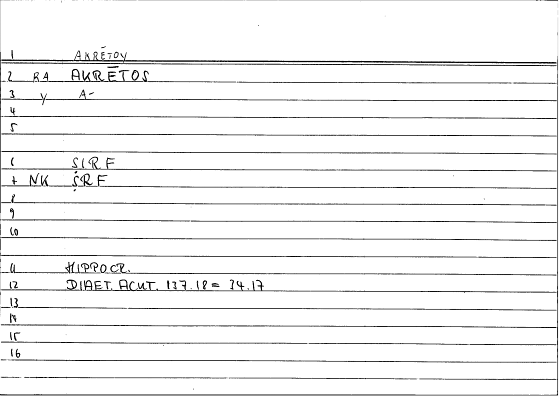 1 AKRĒTOY
2 RA AKRĒTOS
3 y A-
4
5
6 SIRF
7 NK ṢRF
8
9
10
11 HIPPOCR.
12 DIAET. ACUT. 137.18 = 34.17
13
14
15
16